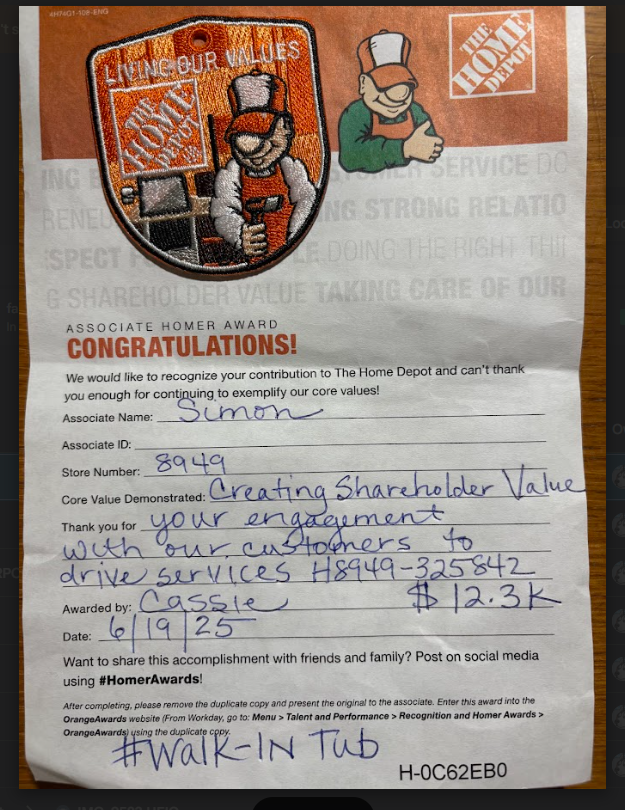 #HNG1-108-ENG
LIVING OUR VALUES
THE HOME DEPOT
THE HOME DEPOT
ING STOMER SERVICE DO
RENEU NG STRONG RELATIO
SPECT F LE DOING THE RIGHT THI
G SHAREHOLDER VALUE TAKING CARE OF OUR
ASSOCIATE HOMER AWARD
CONGRATULATIONS!
We would like to recognize your contribution to The Home Depot and can't thank
you enough for continuing to exemplify our core values!
Associate Name: Simon
Associate ID:
Store Number: 8949
Core Value Demonstrated: Creating Shareholder Value
Thank you for your engagement
with our customers to
drive services H8949-325842
Awarded by: Cassie $12.3K
Date: 6/19/25
Want to share this accomplishment with friends and family? Post on social media
using #HomerAwards!
After completing, please remove the duplicate copy and present the original to the associate. Enter this award into the
OrangeAwards website (From Workday, go to: Menu > Talent and Performance > Recognition and Homer Awards >
OrangeAwards) using the duplicate copy.
#Walk-IN Tub
H-0C62EB0